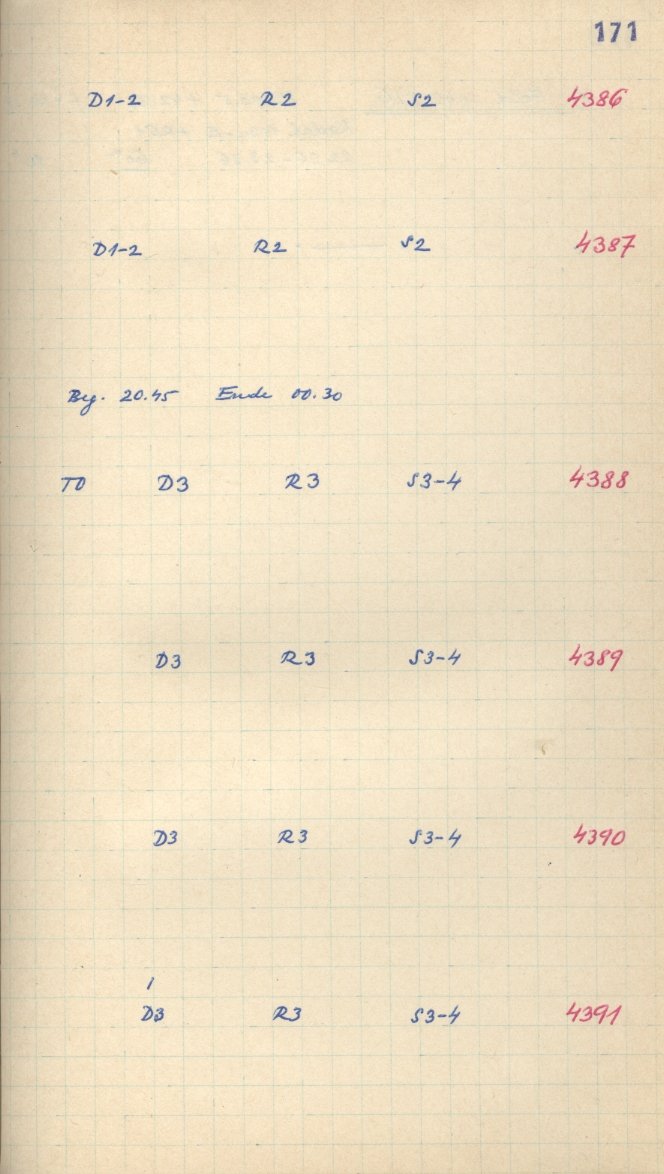 171
D1-2 R2 S2 4386
D1-2 R2 S2 4387
Beg. 20.45 Ende 00.30
TO D3 R3 S3-4 4388
D3 R3 S3-4 4389
D3 R3 S3-4 4390
D3 R3 S3-4 4391